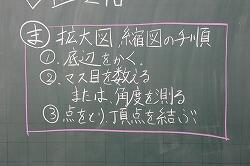 ま 拡大図、縮図の手順
①.底辺をかく.
②.マス目を数える
または、角度を測る
③点をとり、頂点を結ぶ